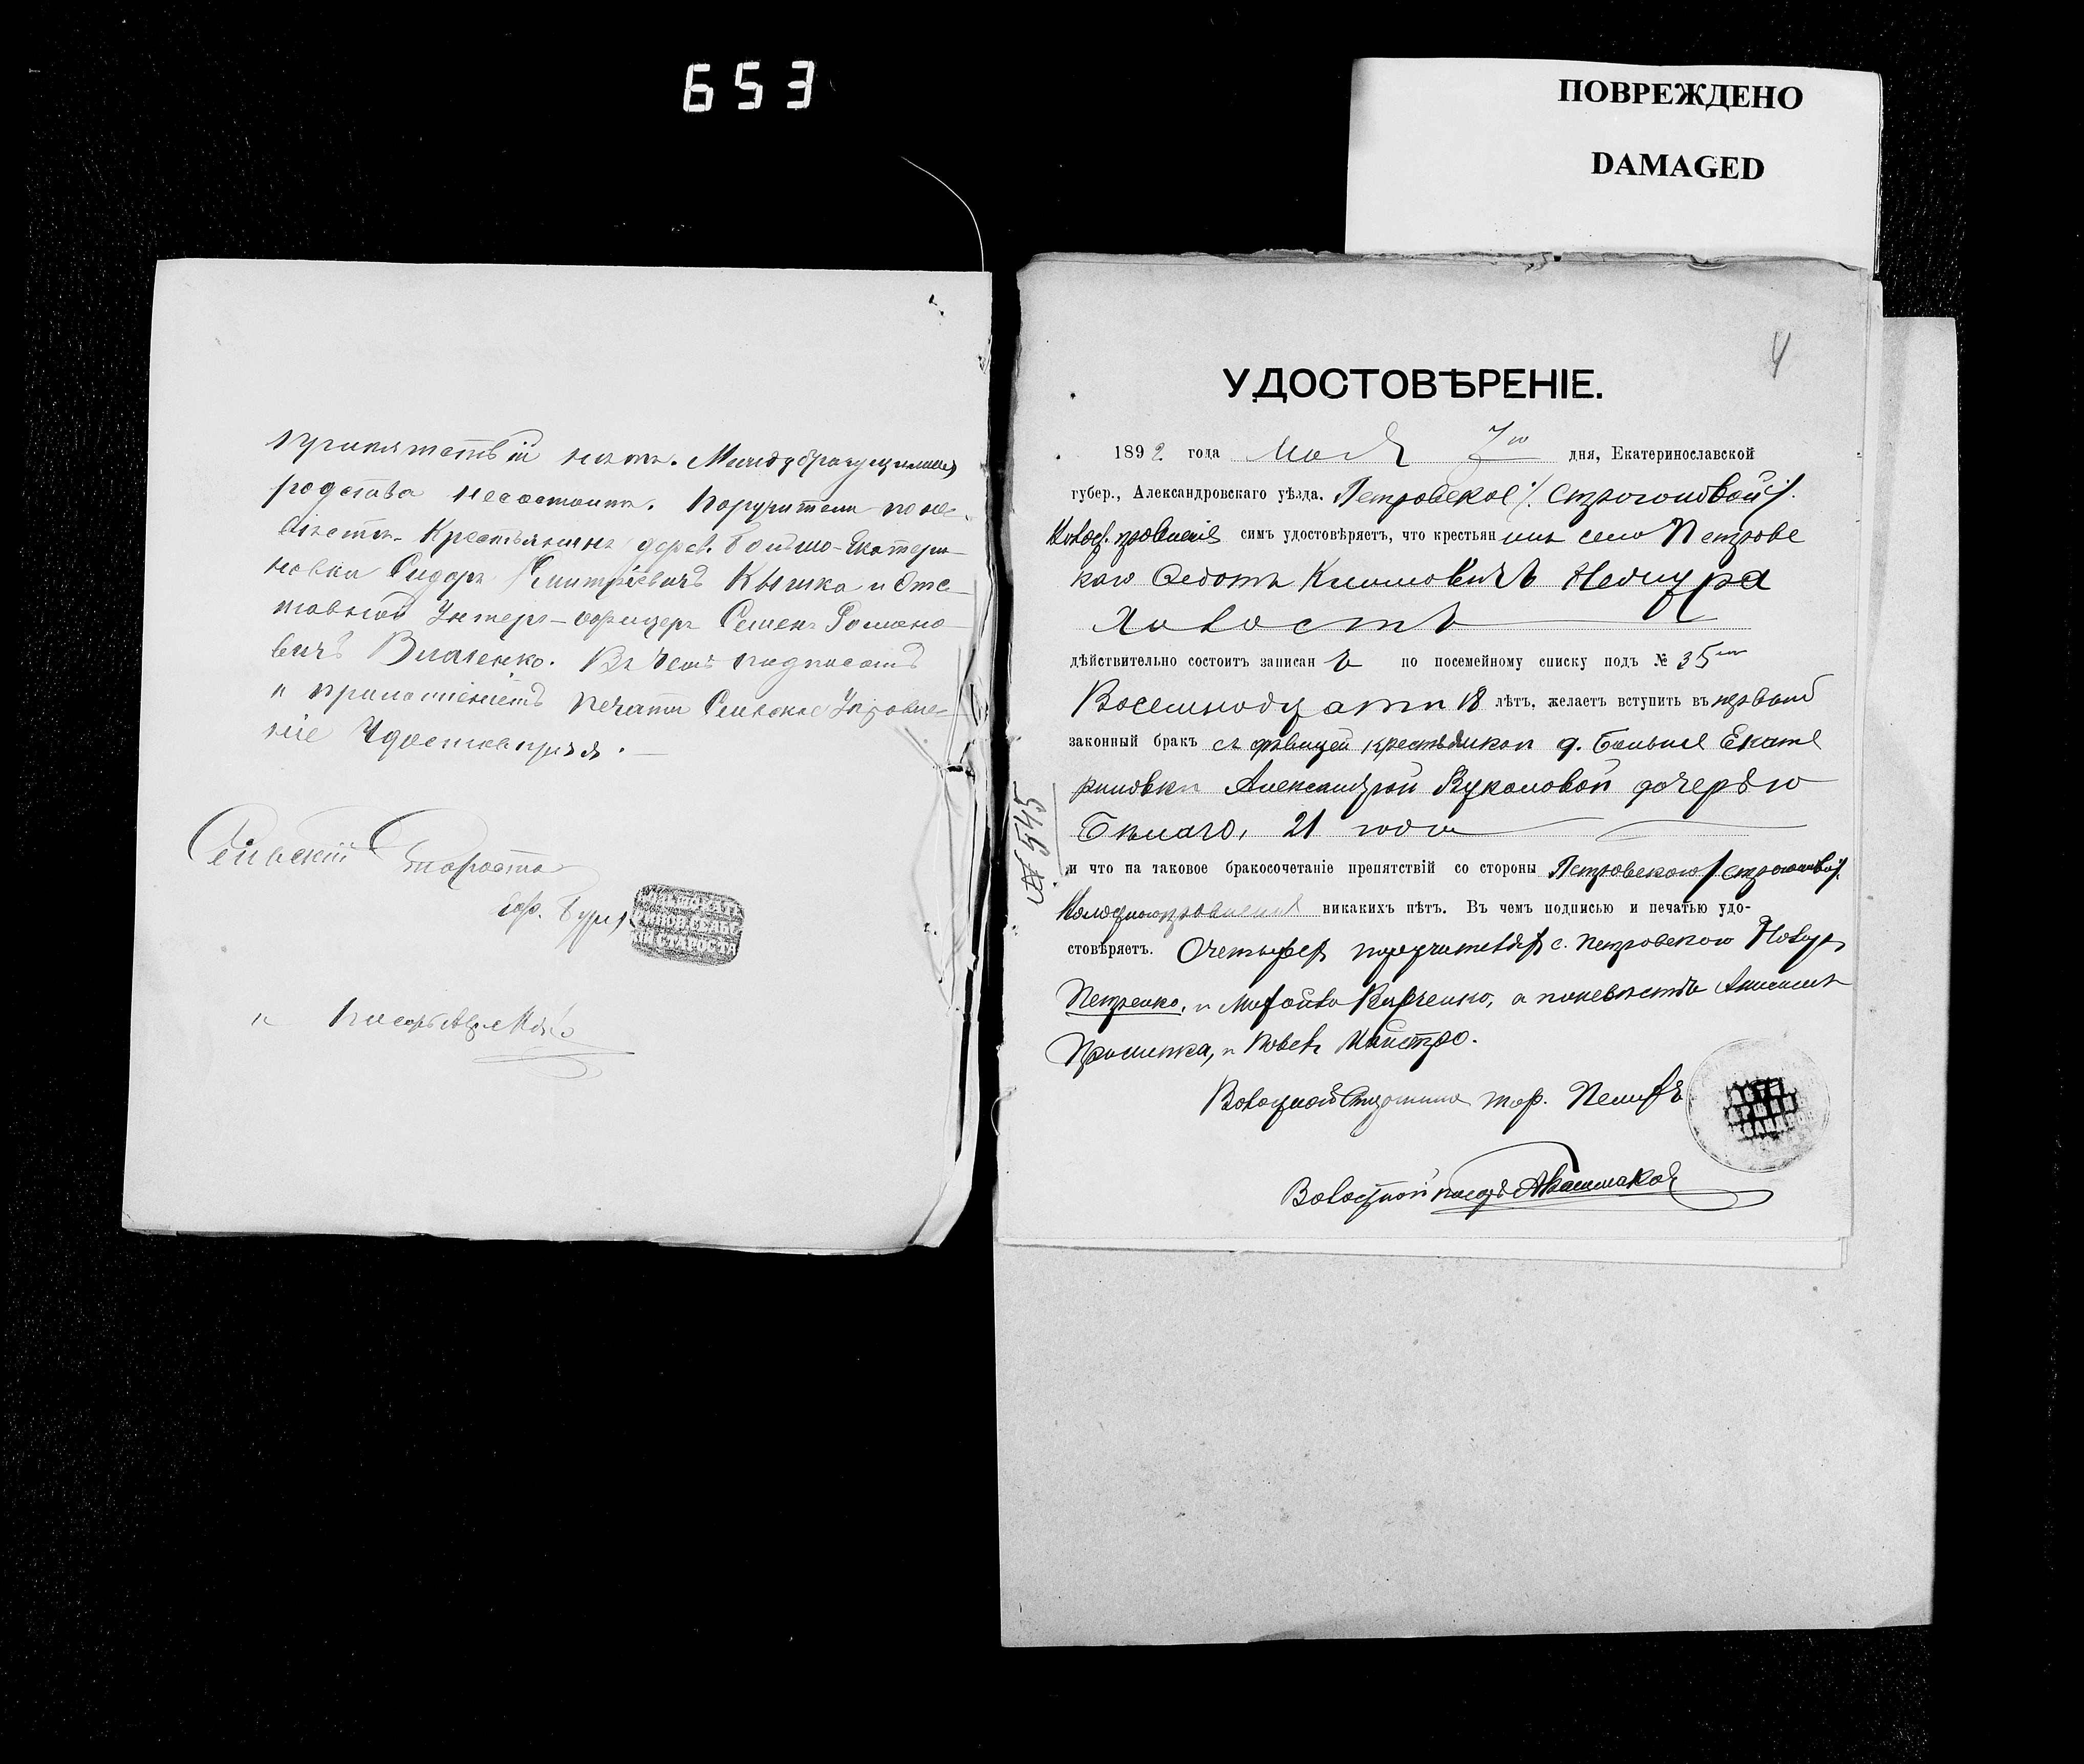 653
ПОВРЕЖДЕНО
DAMAGED
препятствій нетъ. Междубрачущимися
родства несостоитъ. Поручители поне-
вѣсте. Крестьянинъ дерев. Больше-Екатери-
новки Сидоръ Дмитріевичъ Кышка и Отс-
тавной Унтеръ-офицеръ Семенъ Романо-
вичъ Власенко. Въ чемъ подписомъ
и приложеніемъ печати Сельское Управле-
ніе Удостоверяя.
Сельскій Староста
БОЛЬШО-КАТЕ
РИНОВ.СЕЛЬС
КІЙ СТАРОСТА
и Писарь
4
УДОСТОВѢРЕНІЕ.
1892 года Мая 7го дня, Екатеринославской
губер., Александровскаго уѣзда. Петровское /. Строгоновой /.
Волос. правленіе симъ удостовѣряетъ, что крестьянинъ села Петровс
каго Федотъ Климовичъ Немура
Холостъ
дѣйствительно состоитъ записанъ по посемейному списку подъ № 35
Восемнодцати 18 лѣтъ, желаетъ вступить въ первый
законный бракъ съ дѣвицей крестьянкой д. Больше Екате
риновки Александрой Вуколовой дочерью
Бѣлаго, 21 года
№ 545
и что на таковое бракосочетаніе препятствій со стороны Петровскаго / Строгоновой/.
Волостного правленія никакихъ нѣтъ. Въ чемъ подписью и печатью удо-
стовѣряетъ. с. Петровскаго
Петренко, и Михайло Кириченко, а поневѣсте
и Павелъ
Волостной Старшина
Волостной писарь